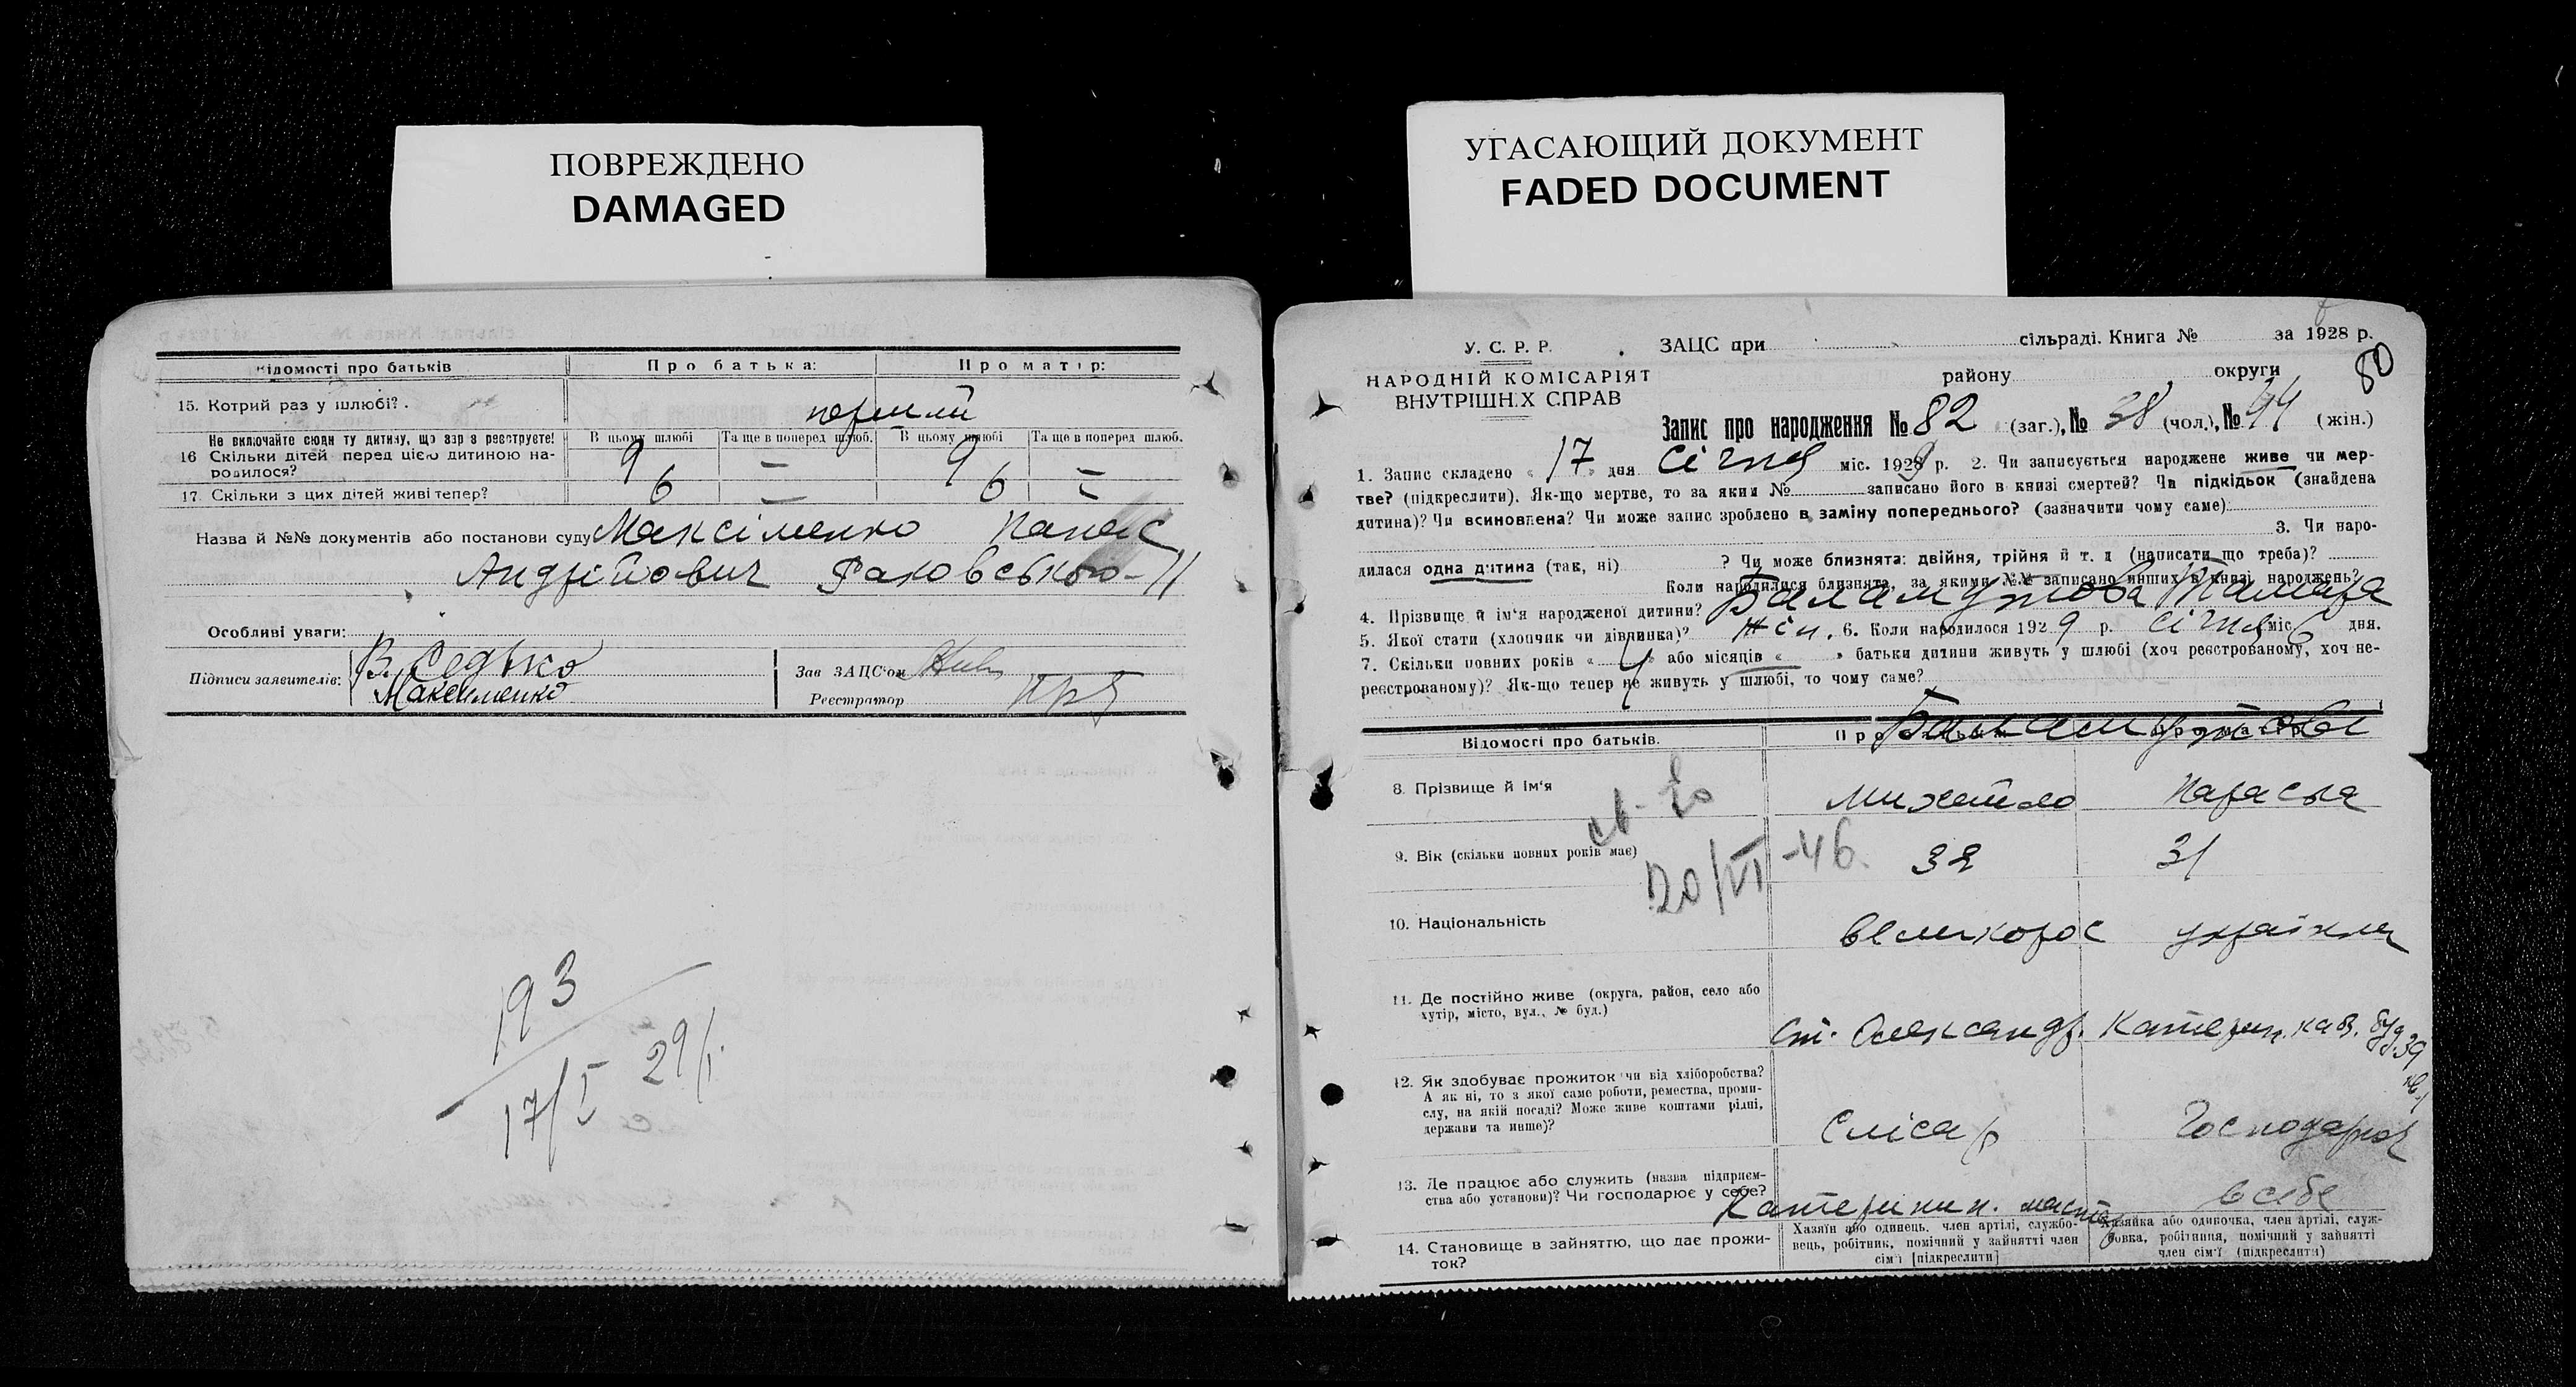 ПОВРЕЖДЕНО
DAMAGED
УГАСАЮЩИЙ ДОКУМЕНТ
FADED DOCUMENT
Відомості про батьків Про батька: Про матір:
15. Котрий раз у шлюбі? перший
Не включайте сюди ту дитину, що зараз реєструєте!
В цьому шлюбі Та ще в поперед шлюб. В цьому шлюбі Та ще в поперед шлюб.
16 Скільки дітей перед цією дитиною на-
родилося? 9 — 9 —
17. Скільки з цих дітей живі тепер? 6 — 6 —
Назва й №№ документів або постанови суду Максіменко Панас
Андрійович Раковського-11
Особливі уваги:
Підписи заявителів: В. Седько
Максименко
Зав ЗАЦС'ом
Реєстратор
193
17/I 29 р.
У. С. Р. Р. ЗАЦС при сільраді. Книга № за 1928 р.
НАРОДНІЙ КОМІСАРІЯТ району округи 80
ВНУТРІШНІХ СПРАВ
Запис про народження № 82 (заг.), № 38 (чол.), № 44 (жін.)
1. Запис складено « 17 » дня Січня міс. 1929 р. 2. Чи записується народжене живе чи мер-
тве? (підкреслити). Як-що мертве, то за яким № записано його в книзі смертей? Чи підкідьок (знайдена
дитина)? Чи всиновлена? Чи може запис зроблено в заміну попереднього? (зазначити чому саме)
3. Чи наро-
дилася одна дитина (так, ні) ? Чи може близнята: двійня, трійня й т. д (написати що треба)?
Коли народилися близнята, за якими №№ записано инших в книзі народжень?
4. Прізвище й ім'я народженої дитини? Баламутова Тамара
5. Якої стати (хлопчик чи дівчинка)? жін. 6. Коли народилося 1929 р. Січня міс 6 дня.
7. Скільки повних років « 4 » або місяців « » батьки дитини живуть у шлюбі (хоч реєстрованому, хоч не-
реєстрованому)? Як-що тепер не живуть у шлюбі, то чому саме?
Відомості про батьків. Баламутови
8. Прізвище й ім'я Михайло Параска
20/VI -46.
9. Вік (скільки повних років має) 32 31
10. Національність великорос українка
11. Де постійно живе (округа, район, село або
хутір, місто, вул., № буд.)
Ст. Олександр. Катерин. каз. буд. 39
12. Як здобуває прожиток чи від хліборобства?
А як ні, то з якої саме роботи, ремества, проми-
слу, на якій посаді? Може живе коштами рідні,
держави та инше)?
Слісар Господарка
13. Де працює або служить (назва підприєм-
ства або установи)? Чи господарює у себе?
Катеринин. майст. в себе
14. Становище в зайняттю, що дає прожи-
ток?
Хазяїн або одинець, член артілі, службо-
вець, робітник, помічний у зайнятті член
сім'ї [підкреслити]
Хазяйка або одиночка, член артілі, служ-
бовка, робітниця, помічний у зайнятті
член сім'ї (підкреслити)